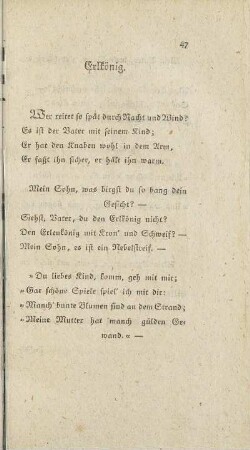 47
Erlkönig.
Wer reitet so spät durch Nacht und Wind?
Es ist der Vater mit seinem Kind;
Er hat den Knaben wohl in dem Arm,
Er faßt ihn sicher, er hält ihn warm.
Mein Sohn, was birgst du so bang dein
Gesicht? —
Siehst, Vater, du den Erlkönig nicht?
Den Erlenkönig mit Kron' und Schweif? —
Mein Sohn, es ist ein Nebelstreif. —
»Du liebes Kind, komm, geh mit mir;
»Gar schöne Spiele spiel' ich mit dir:
»Manch' bunte Blumen sind an dem Strand;
»Meine Mutter hat manch gülden Ge-
wand.« —